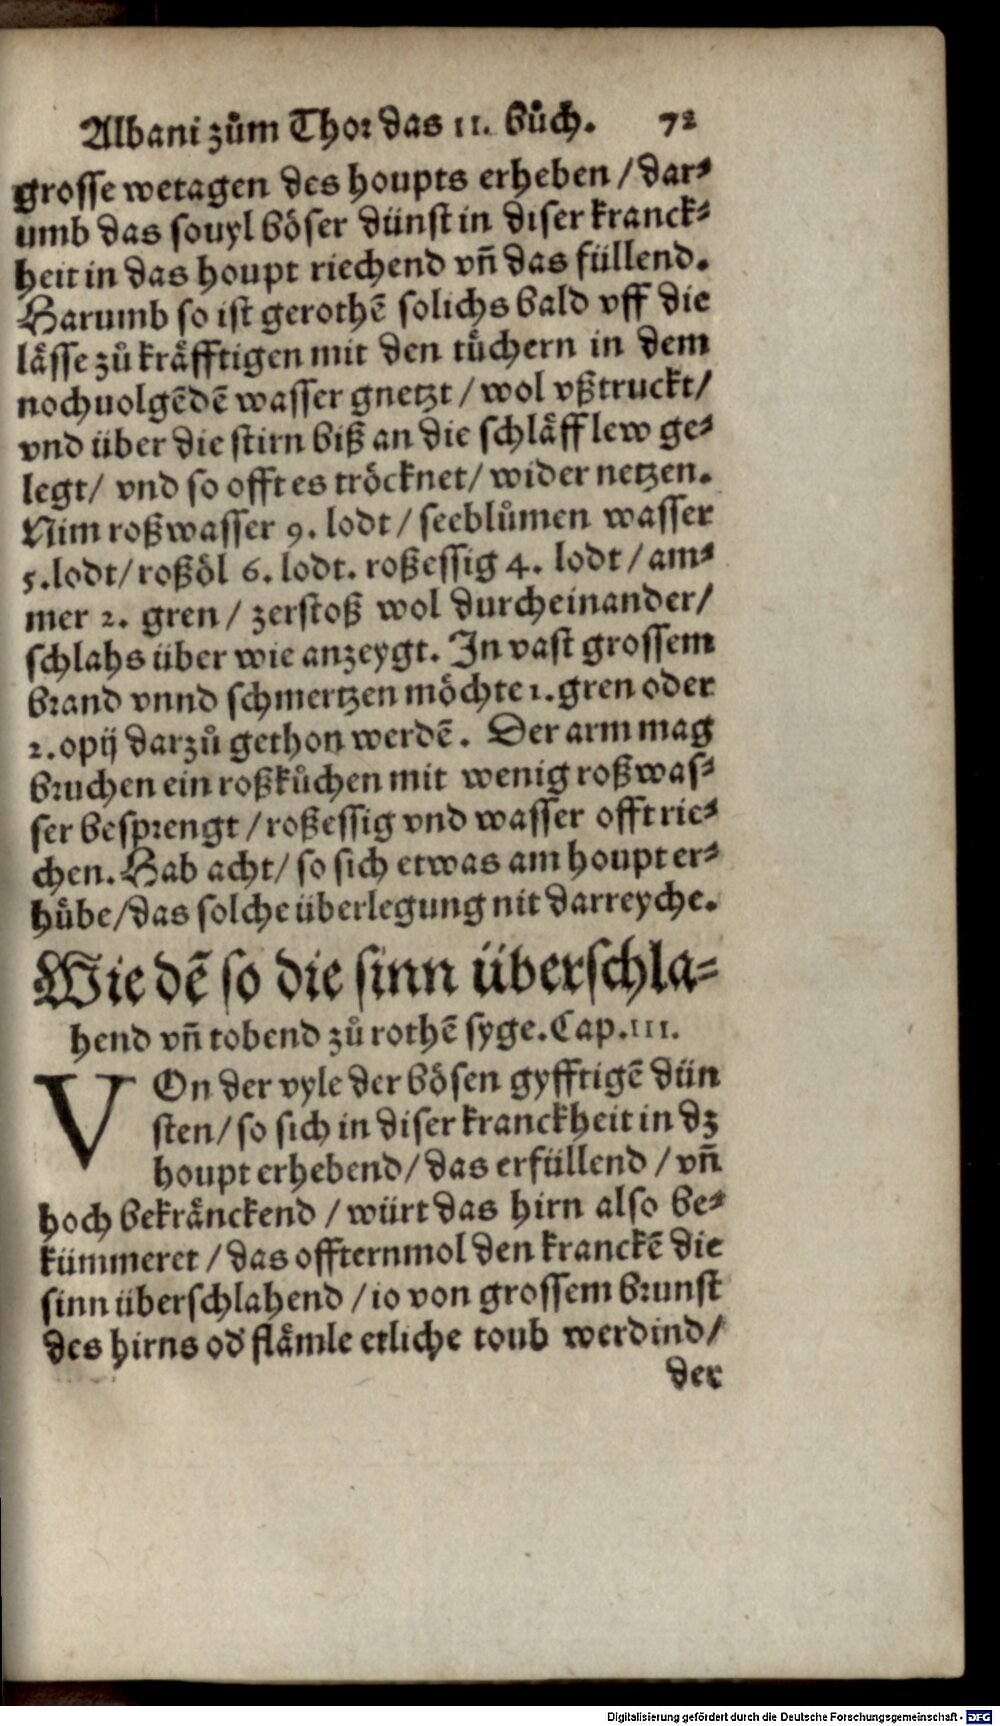 Albani zům Thor das II. bůch. 72
grosse wetagen des houpts erheben / dar⸗
umb das souyl böser dünst in diser kranck⸗
heit in das houpt riechend vñ das füllend.
Harumb so ist gerothē solichs bald vff die
lässe zů kräfftigen mit den tůchern in dem
nochuolgēdē wasser gnetzt / wol vßtruckt /
vnd über die stirn biß an die schläff lew ge⸗
legt / vnd so offt es tröcknet / wider netzen.
Nim roßwasser 9. lodt / seeblůmen wasser
5. lodt / roßöl 6. lodt. roßessig 4. lodt / am⸗
mer 2. gren / zerstoß wol durcheinander /
schlahs über wie anzeygt. In vast grossem
brand vnnd schmertzen möchte 1. gren oder
2. opij darzů gethon werdē. Der arm mag
bruchen ein roßkůchen mit wenig roßwas⸗
ser besprengt / roßessig vnd wasser offt rie⸗
chen. Hab acht / so sich etwas am houpt er⸗
hůbe / das solche überlegung nit darreyche.
Wie dē so die sinn überschla⸗
hend vñ tobend zů rothē syge. Cap. III.
VOn der vyle der bösen gyfftigē dün
sten / so sich in diser kranckheit in dz
houpt erhebend / das erfüllend / vñ
hoch bekränckend / würt das hirn also be⸗
kümmeret / das offternmol den kranckē die
sinn überschlahend / io von grossem brunst
des hirns od' flämle etliche toub werdind /
der
Digitalisierung gefördert durch die Deutsche Forschungsgemeinschaft - DFG